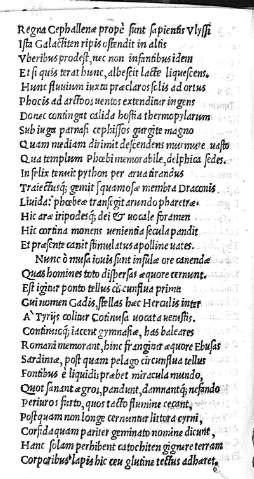 Regna Cephallenæ propè sunt sapientis Vlyssi
Ista Galactiten ripis ostendit in altis
Vberibus prodest, nec non infantibus idem
Et si quis terat hunc, albescit lacte liquescens.
Hunc fluuium iuxta præclaros solis ad ortus
Phocis ad arctoos uentos extenditur ingens
Donec contingat calida hostia thermopylarum
Sub iuga parnasi cephissos gurgite magno
Quam mediam dirimit descendens murmure uasto
Qua templum Phœbi memorabile, delphica sedes.
Infelix tenuit python per arua tirandus
Traiectusq; gemit squamosæ membra Draconis
Liuida: phœbeæ transigit arundo pharetræ.
Hic aræ tripodesq; dei & uocale foramen
Hic cortina monens uenientia secula pandit
Et præsente canit stimulatus apolline uates.
Nunc ô musa iouis sunt insulæ ore canendæ
Quas homines toto dispersas æquore cernunt.
Est igitur ponto tellus circunflua primi
Cui nomen Gadis, stellas hæc Herculis inter
A Tyrijs colitur Cotinusa uocata uenustis.
Continuoq; iacent gymnasiæ, has baleares
Romani memorant, hinc frangitur æquore Ebusus
Sardiniæ, post quam pelago circunflua tellus
Fontibus è liquidis præbet miracula mundo,
Quot sanant ægros, pandunt, damnantq; nefando
Periuros furto, quos tacto flumine cecant.
Postquam non longe cernuntur littora cyrni,
Corsida quam pariter geminato nomine dicunt,
Hanc solam perhibent catochiten gignere terram
Corporibus lapis hic ceu glutine tectus adhæret,